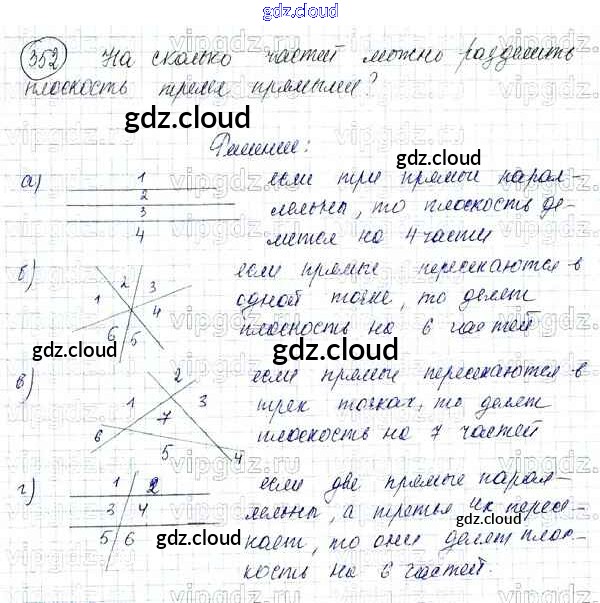 gdz.cloud
352 На сколько частей можно разделить
плоскость тремя прямыми?
gdz.cloud
Решение:
gdz.cloud
а) 1 если три прямые парал-
2 лельны, то плоскость де-
3 лится на 4 части
4
б) если прямые пересекаются в
1 2 3 4 5 6 одной точке, то делят
плоскость на 6 частей
gdz.cloud
gdz.cloud
в) если прямые пересекаются в
1 2 3 4 5 6 7 трех точках, то делят
плоскость на 7 частей
г) 1 2 если две прямые парал-
3 4 лельны, а третья их пересе-
5 6 кает, то они делят плос-
кость на 6 частей.
gdz.cloud
gdz.cloud
gdz.cloud
vipgdz.ru